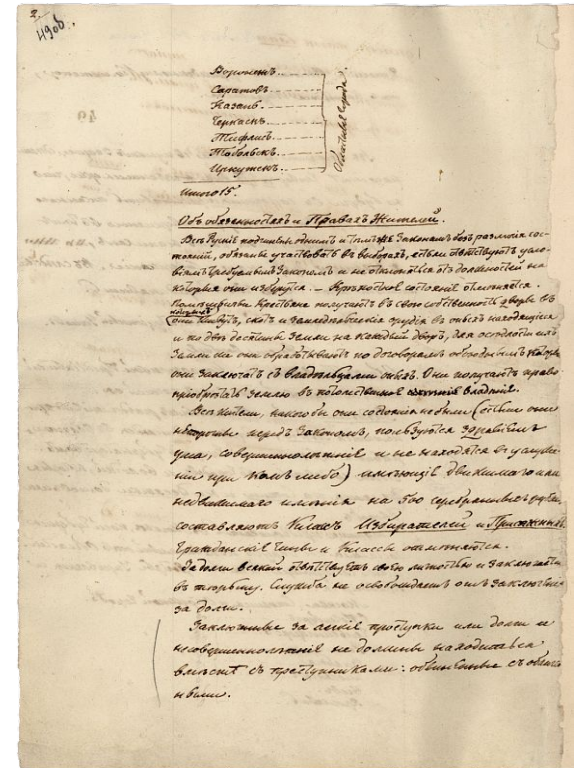 2.
490б.
Воронежъ
Саратовъ
Казань
Черкаскъ
Тифлисъ
Тобольскъ
Иркутскъ
Областные города.
Итого 15.
Объ обязанностяхъ и Правахъ Жителей.
Все Рускіе подчинены однимъ и тѣмъ же Законамъ безъ различія сос-
тояній, обязаны участвовать въ выборахъ, если отвѣтствуютъ усло-
віямъ требуемымъ Закономъ и не отклоняться отъ должностей на
которыя они изберутся. – Крѣпостное состояніе отмѣняется.
Помѣщичьи Крестьяне получаютъ въ свою собственность дворы въ
которыхъ
они живутъ, скотъ и земледѣльческія орудія въ оныхъ находящіеся
и по двѣ десятины земли на каждый дворъ, для осѣдлости ихъ
Земли же они обработываютъ по договорамъ обоюднымъ которые
они заключатъ съ владѣльцами оныхъ. Они получаютъ право
пріобрѣтать землю въ потомственное владѣніе.
Все жители, какого бы они состоянія не были (если они
перед Закономъ, пользуются здравіемъ
ума, совершеннолѣтніе и не находятся въ услуже-
ніи при комъ либо) имѣющіе движимаго или
недвижимаго имѣнія на 500 серебряныхъ рублей
составляютъ Класъ Избирателей и Присяжныхъ.
Гражданскіе Чины и Классы отмѣняются.
За долги всякій отвѣтствуетъ своею личностью и заключается
въ тюрьму. Служба не освобождаетъ отъ заключенія
за долги.
Заключенные за легкіе проступки или долги и
несовершеннолѣтніе не должны находиться
вмѣстѣ съ преступниками: обвиненные съ обвинен-
ными.